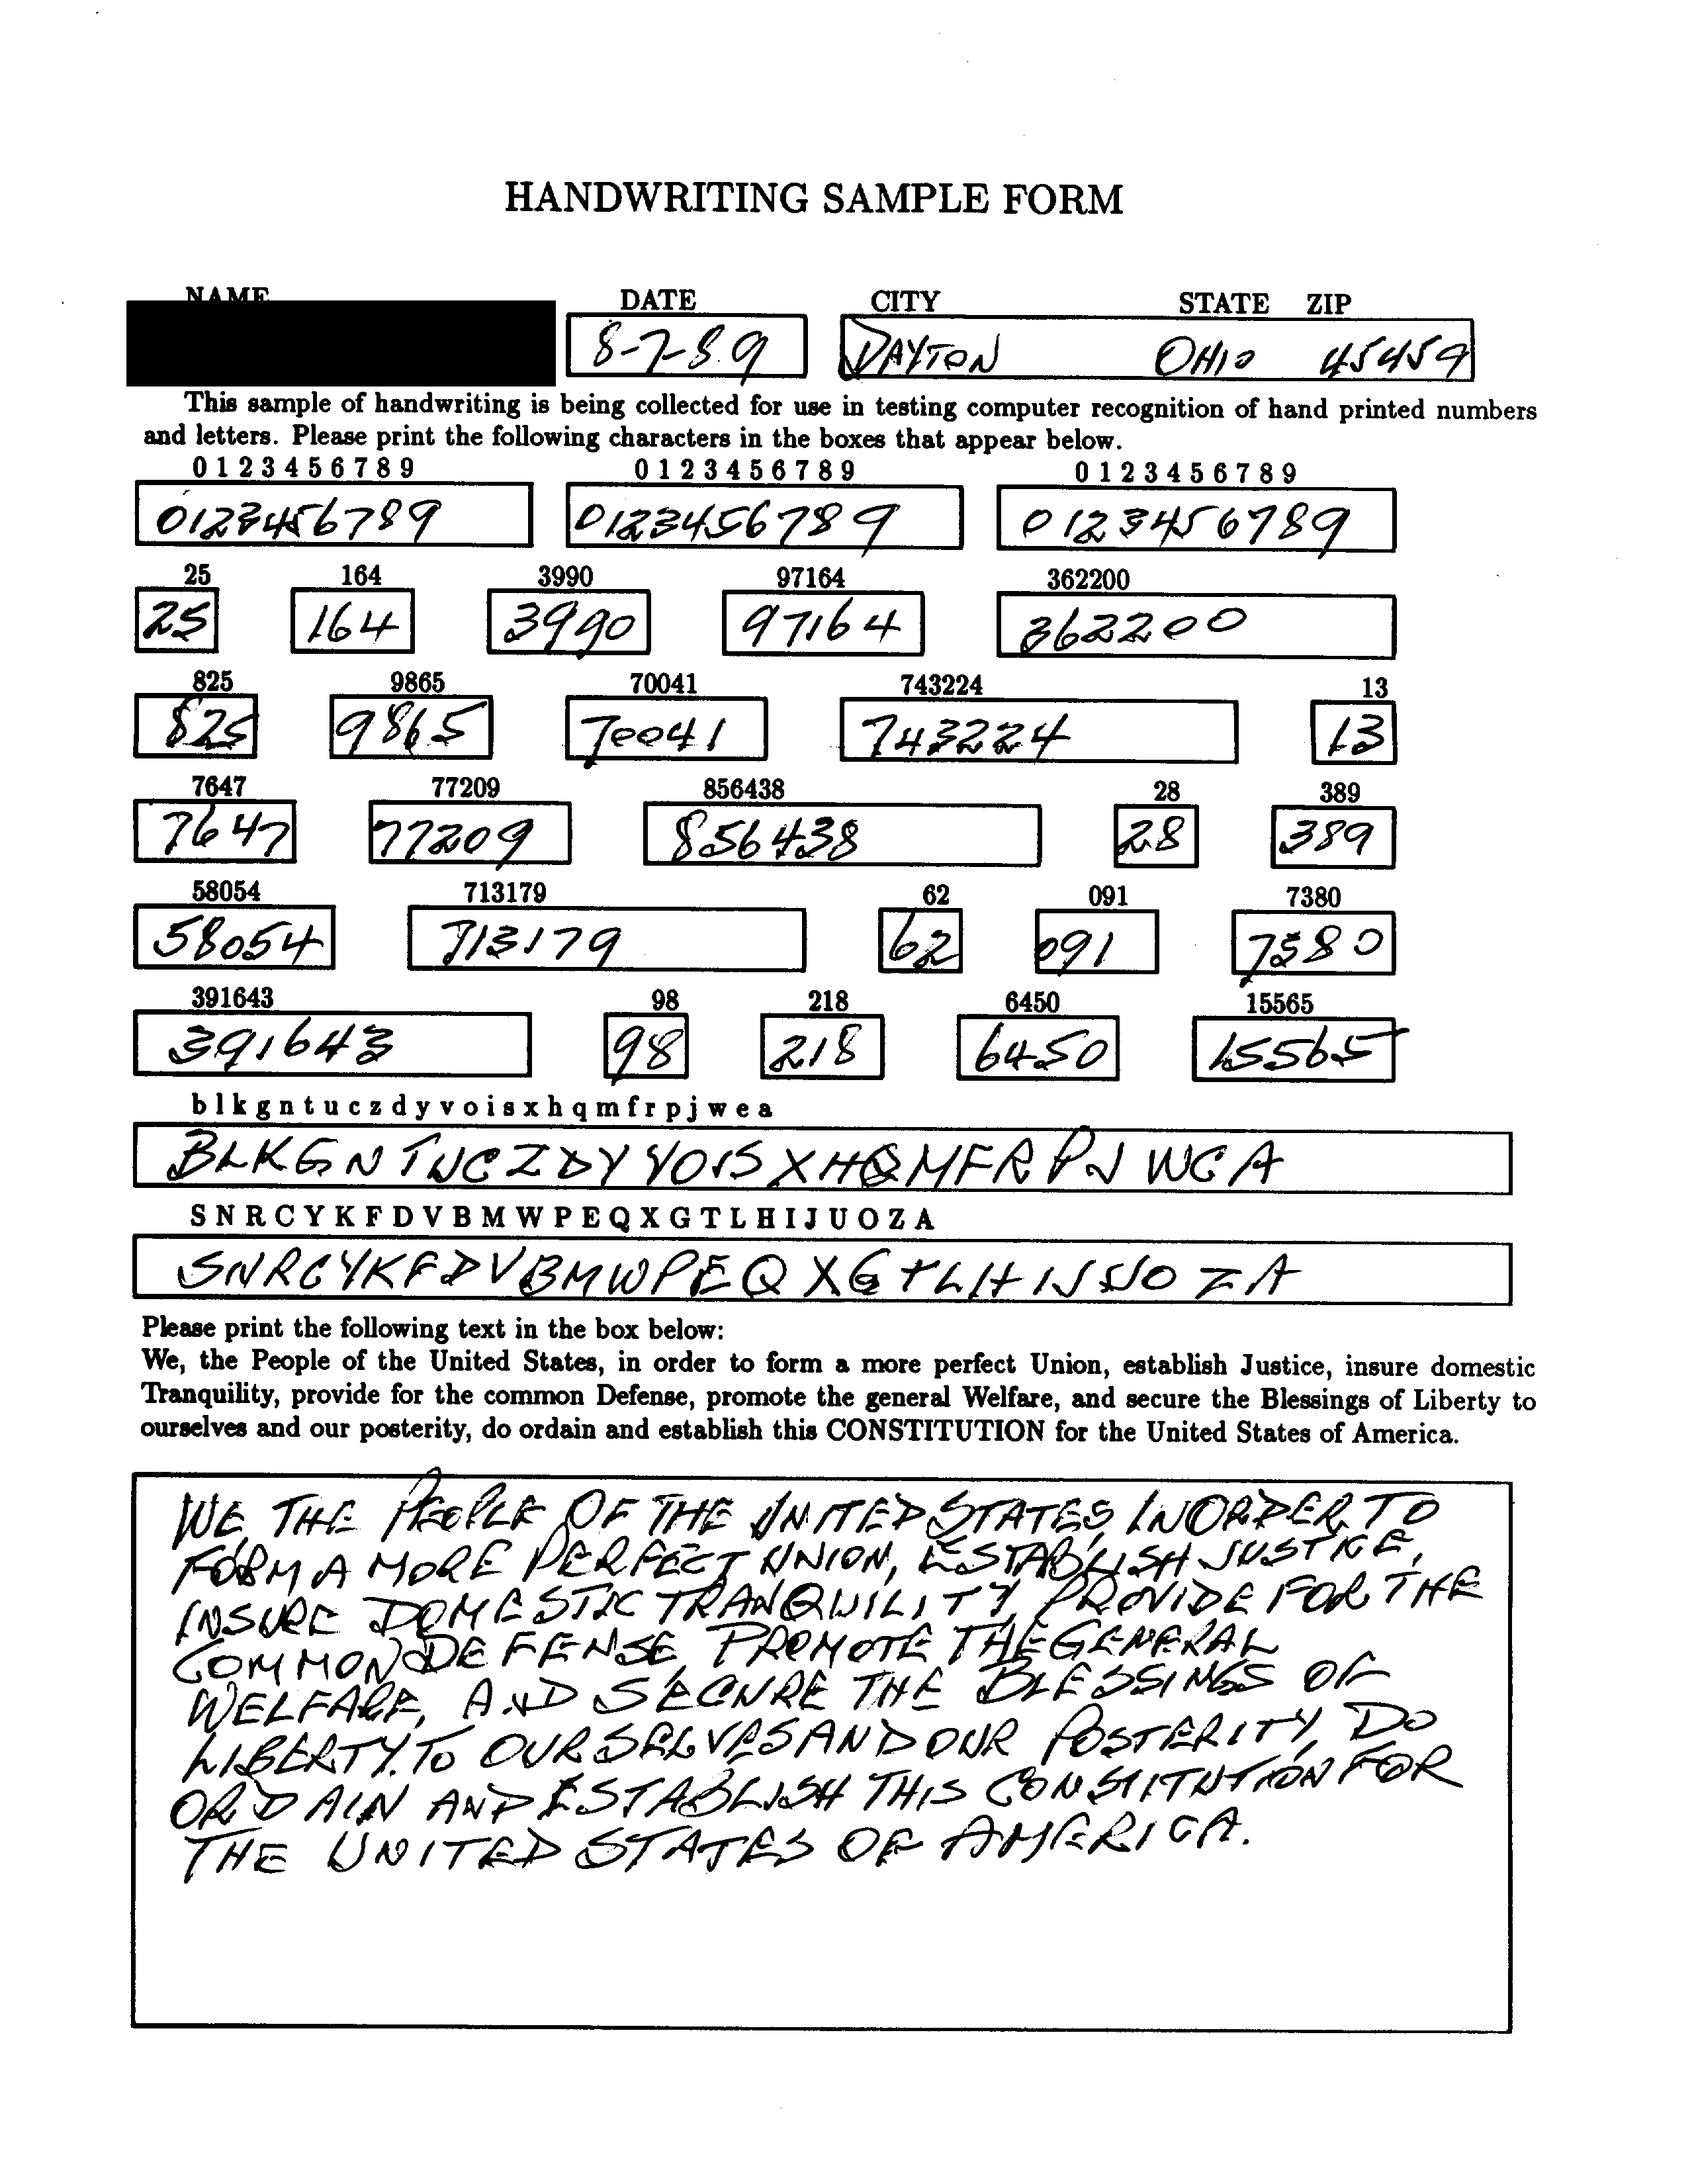 HANDWRITING SAMPLE FORM
NAME DATE CITY STATE ZIP
8-7-89 DAYTON OHIO 45459
This sample of handwriting is being collected for use in testing computer recognition of hand printed numbers
and letters. Please print the following characters in the boxes that appear below.
0 1 2 3 4 5 6 7 8 9 0 1 2 3 4 5 6 7 8 9 0 1 2 3 4 5 6 7 8 9
0123456789 0123456789 0123456789
25 164 3990 97164 362200
25 164 3990 97164 362200
825 9865 70041 743224 13
825 9865 70041 743224 13
7647 77209 856438 28 389
7647 77209 856438 28 389
58054 713179 62 091 7380
58054 713179 62 091 7380
391643 98 218 6450 15565
391643 98 218 6450 15565
b l k g n t u c z d y v o i s x h q m f r p j w e a
BLKGNTUCZDYVOISXHQMFRPJWEA
S N R C Y K F D V B M W P E Q X G T L H I J U O Z A
SNRCYKFDVBMWPEQXGTLHIJUOZA
Please print the following text in the box below:
We, the People of the United States, in order to form a more perfect Union, establish Justice, insure domestic
Tranquility, provide for the common Defense, promote the general Welfare, and secure the Blessings of Liberty to
ourselves and our posterity, do ordain and establish this CONSTITUTION for the United States of America.
WE, THE PEOPLE OF THE UNITED STATES, IN ORDER TO
FORM A MORE PERFECT UNION, ESTABLISH JUSTICE,
INSURE DOMESTIC TRANQUILITY, PROVIDE FOR THE
COMMON DEFENSE, PROMOTE THE GENERAL
WELFARE, AND SECURE THE BLESSINGS OF
LIBERTY. TO OURSELVES AND OUR POSTERITY, DO
ORDAIN AND ESTABLISH THIS CONSTITUTION FOR
THE UNITED STATES OF AMERICA.